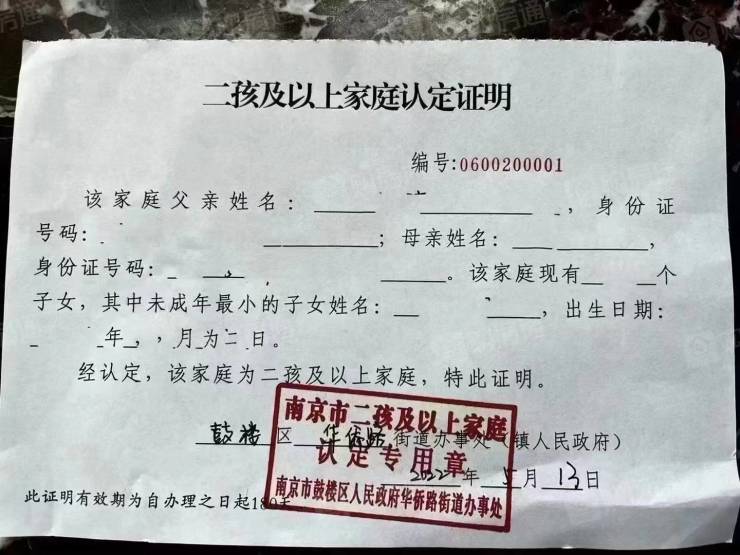 二孩及以上家庭认定证明
编号:0600200001
该家庭父亲姓名：，身份证
号码：；母亲姓名：，
身份证号码：。该家庭现有个
子女，其中未成年最小的子女姓名：，出生日期：
年，月为二日。
经认定，该家庭为二孩及以上家庭，特此证明。
鼓楼区华侨路街道办事处（镇人民政府）
2022年5月13日
此证明有效期为自办理之日起180天
南京市二孩及以上家庭
认定专用章
南京市鼓楼区人民政府华侨路街道办事处